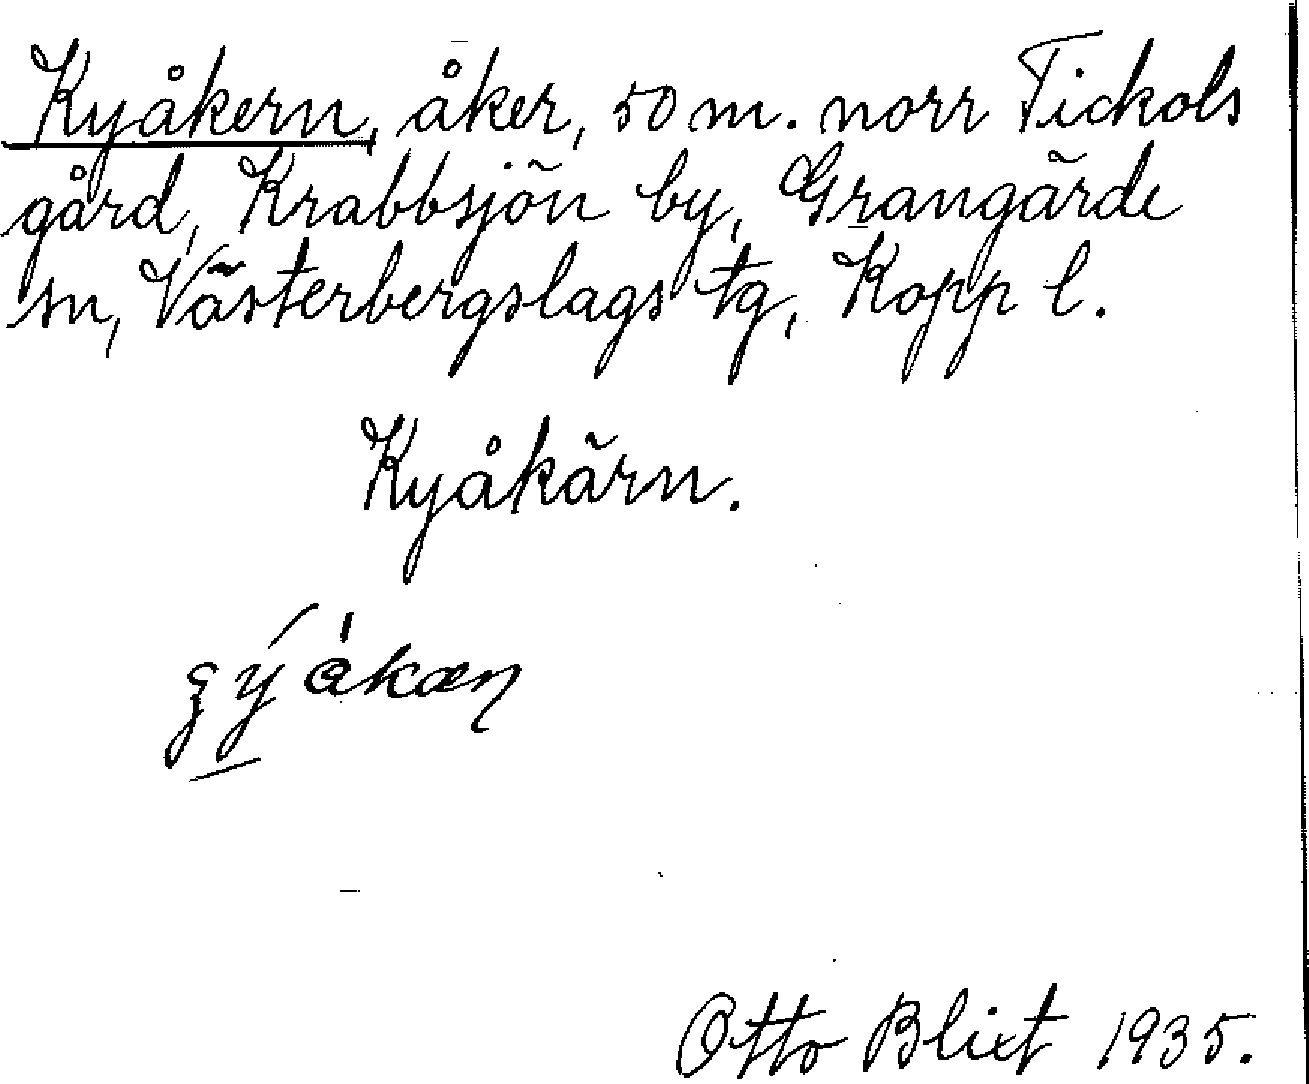 Kyåkern, åker, 50 m. norr Tickols
gård, Krabbsjön by, Grangärde
sn, Västerbergslags tg, Kopp l.
Kyåkärn.
Otto Blixt 1935.